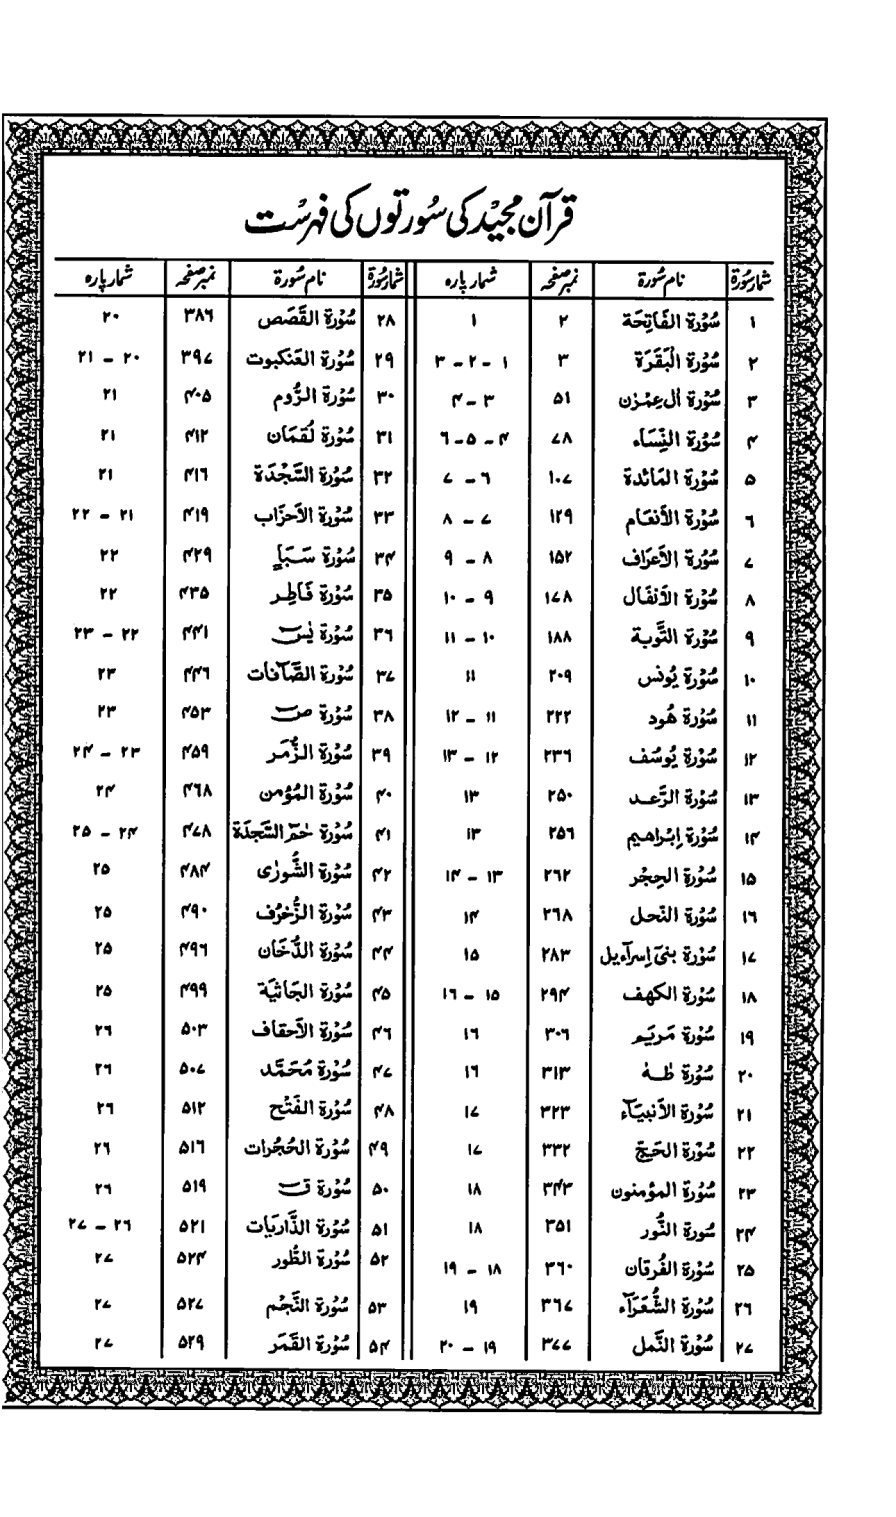 قرآن مجید کی سُورتوں کی فہرست
شمار سُورۃ نام سُورۃ نمبر صفحہ شمار پارہ شمار سُورۃ نام سُورۃ نمبر صفحہ شمار پارہ
۱ سُوْرَة الفَاتِحَة ۲ ۱ ۲۸ سُوْرَة القَصَص ۳۸۶ ۲۰
۲ سُوْرَة الْبَقَرَة ۳ ۱ - ۲ - ۳ ۲۹ سُوْرَة العَنكبوت ۳۹۷ ۲۰ - ۲۱
۳ سُوْرَة اٰل عِمْرٰن ۵۱ ۳ - ۴ ۳۰ سُوْرَة الرُّوم ۴۰۵ ۲۱
۴ سُوْرَة النِّسَاء ۷۸ ۴ - ۵ - ۶ ۳۱ سُوْرَة لُقمَان ۴۱۲ ۲۱
۵ سُوْرَة المَائدة ۱۰۷ ۶ - ۷ ۳۲ سُوْرَة السَّجْدَة ۴۱۶ ۲۱
۶ سُوْرَة الأنعَام ۱۲۹ ۷ - ۸ ۳۳ سُوْرَة الأحزَاب ۴۱۹ ۲۱ - ۲۲
۷ سُوْرَة الأعرَاف ۱۵۲ ۸ - ۹ ۳۴ سُوْرَة سَبَإٍ ۴۲۹ ۲۲
۸ سُوْرَة الأنفَال ۱۷۸ ۹ - ۱۰ ۳۵ سُوْرَة فَاطِر ۴۳۵ ۲۲
۹ سُوْرَة التَّوبة ۱۸۸ ۱۰ - ۱۱ ۳۶ سُوْرَة يٰسٓ ۴۴۱ ۲۲ - ۲۳
۱۰ سُوْرَة يُونس ۲۰۹ ۱۱ ۳۷ سُوْرَة الصَّآفات ۴۴۶ ۲۳
۱۱ سُوْرَة هُود ۲۲۲ ۱۱ - ۱۲ ۳۸ سُوْرَة صٓ ۴۵۳ ۲۳
۱۲ سُوْرَة يُوسُف ۲۳۶ ۱۲ - ۱۳ ۳۹ سُوْرَة الزُّمَر ۴۵۹ ۲۳ - ۲۴
۱۳ سُوْرَة الرَّعد ۲۵۰ ۱۳ ۴۰ سُوْرَة المُؤمن ۴۶۸ ۲۴
۱۴ سُوْرَة إبْراهيم ۲۵۶ ۱۳ ۴۱ سُوْرَة حٰمٓ السَّجدَة ۴۷۸ ۲۴ - ۲۵
۱۵ سُوْرَة الحِجْر ۲۶۲ ۱۳ - ۱۴ ۴۲ سُوْرَة الشُّورٰى ۴۸۴ ۲۵
۱۶ سُوْرَة النّحل ۲۶۸ ۱۴ ۴۳ سُوْرَة الزُّخرُف ۴۹۰ ۲۵
۱۷ سُوْرَة بنىٓ إسرآءيل ۲۸۳ ۱۵ ۴۴ سُوْرَة الدُّخَان ۴۹۶ ۲۵
۱۸ سُوْرَة الكهف ۲۹۴ ۱۵ - ۱۶ ۴۵ سُوْرَة الجَاثيَة ۴۹۹ ۲۵
۱۹ سُوْرَة مَريَم ۳۰۶ ۱۶ ۴۶ سُوْرَة الأحقاف ۵۰۳ ۲۶
۲۰ سُوْرَة طٰهٰ ۳۱۳ ۱۶ ۴۷ سُوْرَة مُحَمَّد ۵۰۷ ۲۶
۲۱ سُوْرَة الأنبيَآء ۳۲۳ ۱۷ ۴۸ سُوْرَة الفَتْح ۵۱۲ ۲۶
۲۲ سُوْرَة الحَجّ ۳۳۲ ۱۷ ۴۹ سُوْرَة الحُجُرات ۵۱۶ ۲۶
۲۳ سُوْرَة المؤمنون ۳۴۳ ۱۸ ۵۰ سُوْرَة قٓ ۵۱۹ ۲۶
۲۴ سُورة النُّور ۳۵۱ ۱۸ ۵۱ سُوْرَة الذَّاريَات ۵۲۱ ۲۶ - ۲۷
۲۵ سُوْرَة الفُرقان ۳۶۰ ۱۸ - ۱۹ ۵۲ سُوْرَة الطُّور ۵۲۴ ۲۷
۲۶ سُوْرَة الشُّعَرَآء ۳۶۷ ۱۹ ۵۳ سُوْرَة النَّجْم ۵۲۷ ۲۷
۲۷ سُوْرَة النَّمل ۳۷۷ ۱۹ - ۲۰ ۵۴ سُوْرَة القَمَر ۵۲۹ ۲۷